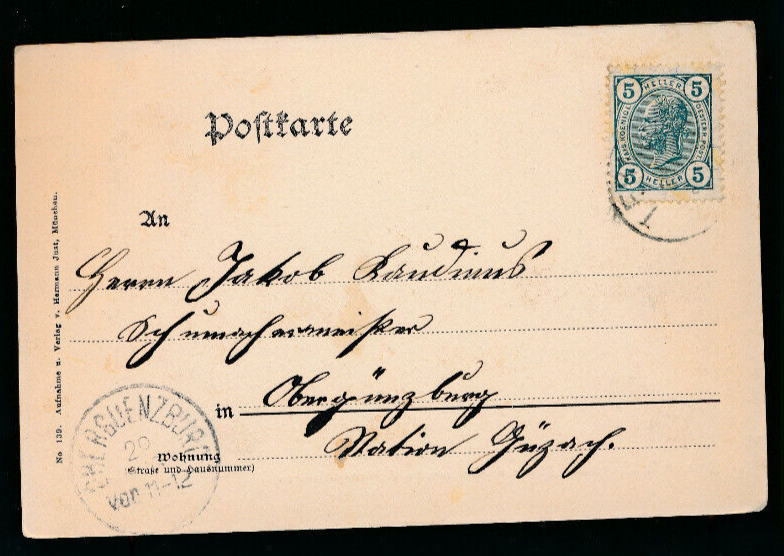 Postkarte
5 HELLER 5
KAIS. KOENIGL. OESTERR. POST.
5 HELLER 5
An
Herrn Jakob
Schumachermeister
in Obergünzburg
Station Günzach.
Wohnung
(Straße und Hausnummer)
OBERGUENZBURG
29
Vor 11-12
No 139. Aufnahme u. Verlag v. Hermann Just, München.